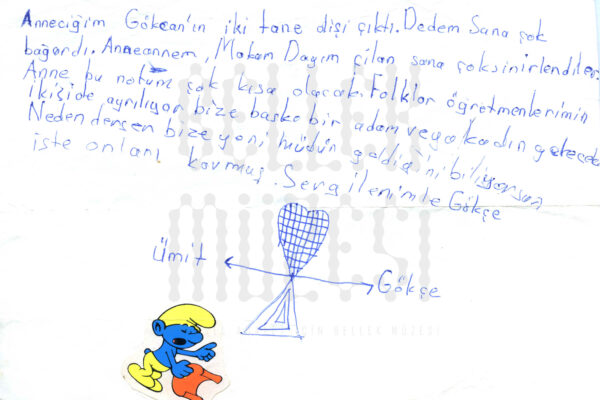 Anneciğim Gökcan'ın iki tane dişi çıktı. Dedem Sana çok
bağırdı. Anneannem, Hakan Dayım çilan sana çok sinirlendiler.
Anne bu notum çok kısa olacak. Folklor öğretmenlerimin
ikiside ayrılıyor bize başka bir adam veya kadın gelecek
Neden dersen bize yeni müdür geldiğini biliyorsun
işte onları kovmuş. Sevgilerimle Gökçe
Ümit
Gökçe
BELLEK
MÜZESİ
İÇİN BELLEK MÜZESİ